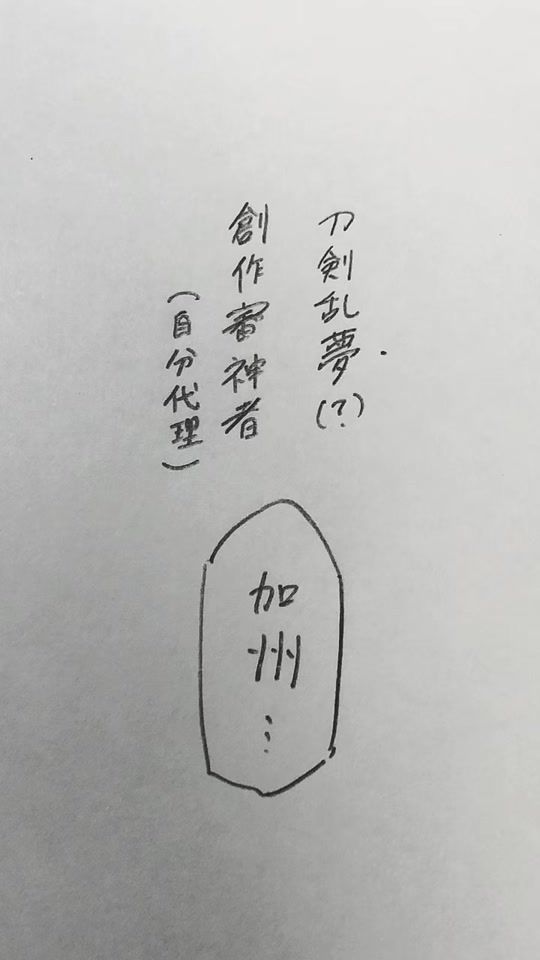 刀剣乱夢(?)
創作審神者
(自分代理)
加州…